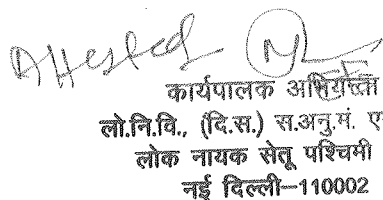 Attested
कार्यपालक अभियन्ता
लो.नि.वि., (दि.स.) स.अनु.मं. ए
लोक नायक सेतू पश्चिमी
नई दिल्ली–110002